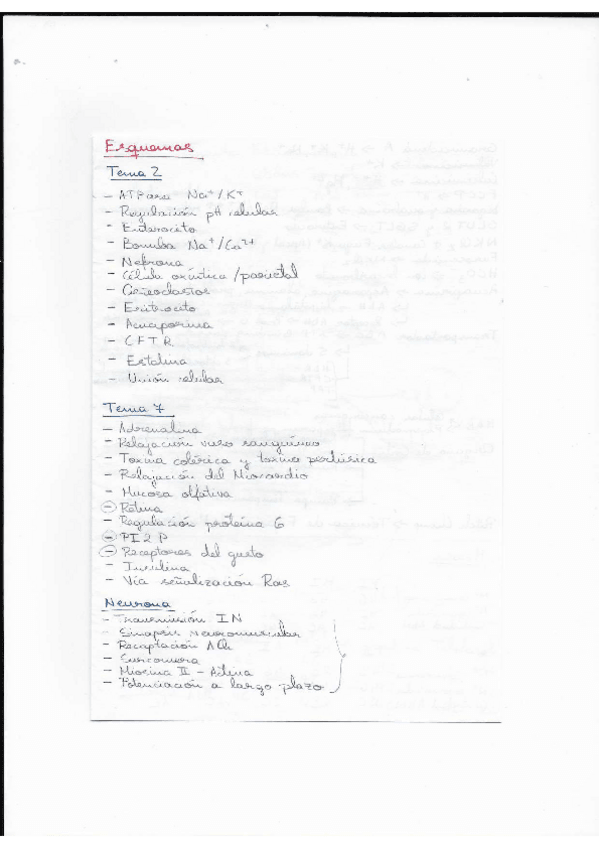 Esquemas
Tema 2
- ATPasa Na⁺/K⁺
- Regulación pH celular
- Enterocito
- Bomba Na⁺/Ca²⁺
- Nefrona
- Célula oxíntica/parietal
- Osteoclastos
- Eritrocito
- Acuaporina
- CFTR
- Estatina
- Unión celular
Tema 7
- Adrenalina
- Relajación vaso sanguíneo
- Toxina colérica y toxina pertúsica
- Relajación del Miocardio
- Mucosa olfativa
- Retina
- Regulación proteína G
- PI2P
- Receptores del gusto
- Insulina
- Vía señalización Ras
Neurona
- Transmisión IN
- Sinapsis Neuromuscular
- Recaptación
- Sarcomera
- Miosina II - Actina
- Potenciación a largo plazo